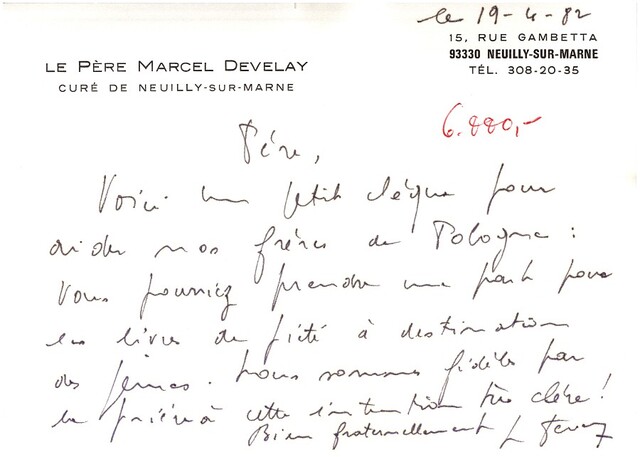 le 19-4-82
15, RUE GAMBETTA
93330 NEUILLY-SUR-MARNE
TÉL. 308-20-35
LE PÈRE MARCEL DEVELAY
CURÉ DE NEUILLY-SUR-MARNE
6.880,-
Père,
Voici un petit chèque pour
aider nos frères de Pologne :
Vous pourriez prendre une part pour
les livres de piété à destination
des jeunes. Nous sommes fidèles par
la prière à cette intention très chère !
Bien fraternellement